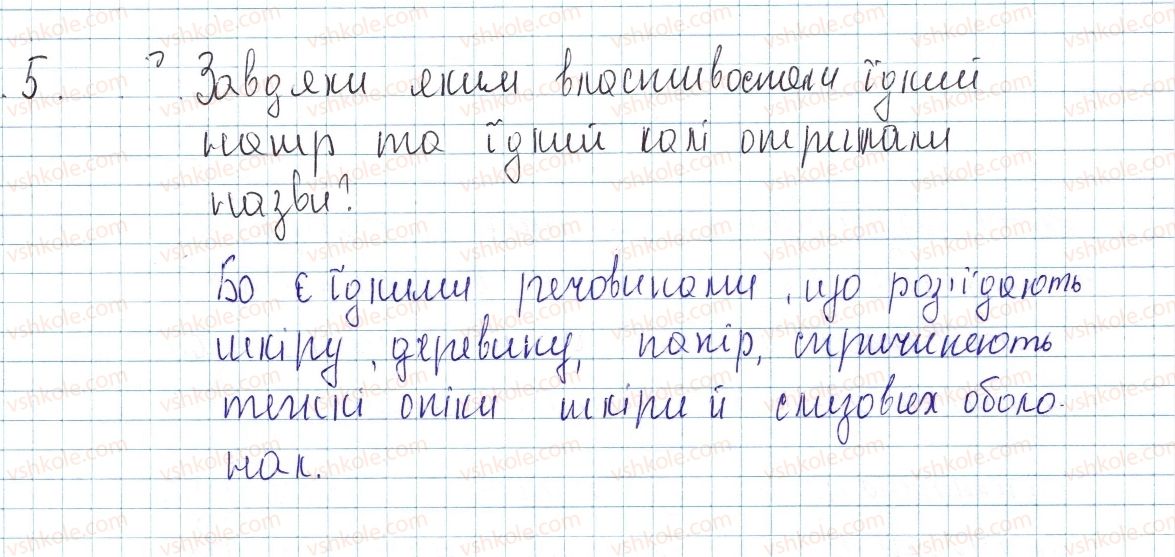 5. ? Завдяки яким властивостям їдкий
натр та їдкий калі отримали
назви?
Бо є їдкими речовинами, що роз'їдають
шкіру, деревину, папір, спричиняють
тяжкі опіки шкіри й слизових оболо-
нак.